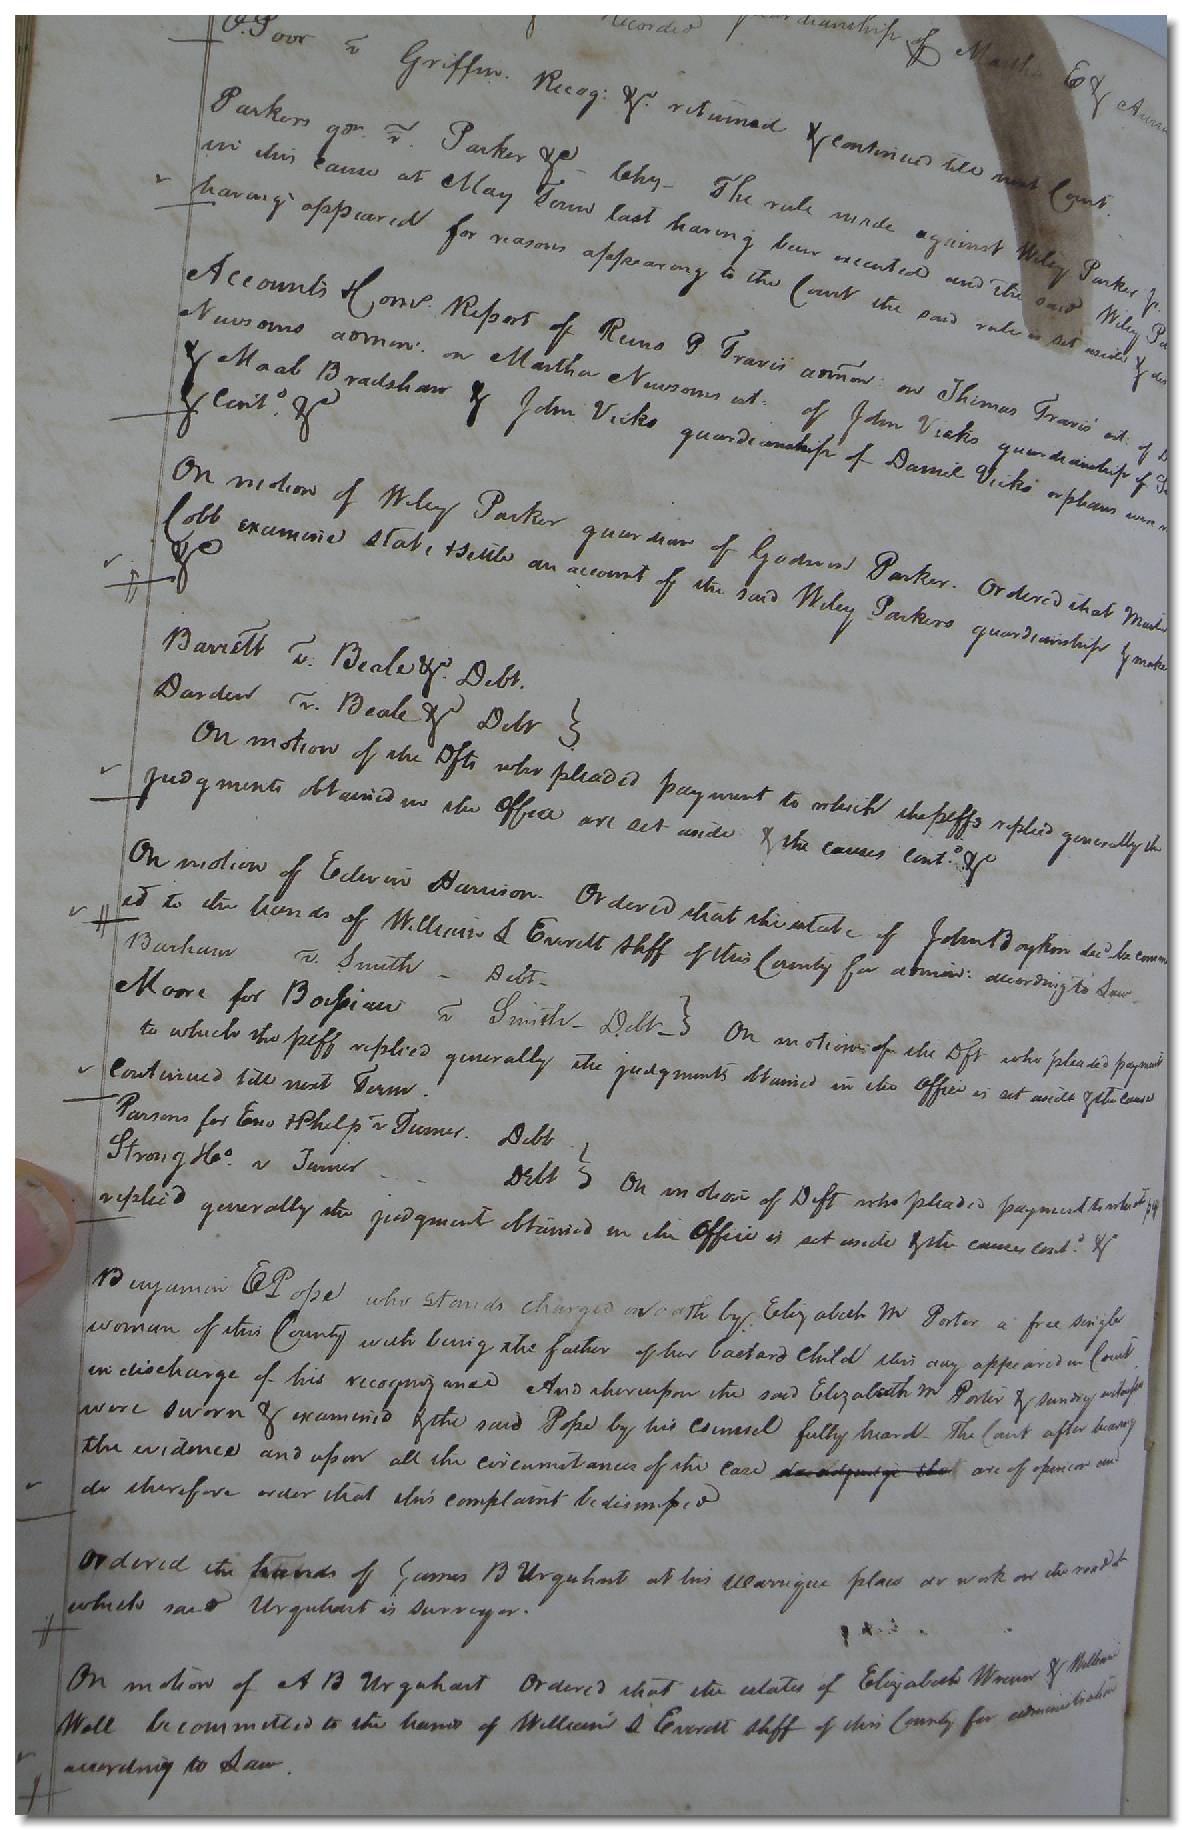 Recorded guardianship of Martha E &
O. Poor v Griffin. Recog: &c. returned & continued till next Court.
Parkers gdn. v. Parker &c - Chy - The rule made against Wiley Parker Jr.
in this cause at May Term last having been executed and the said Wiley
having appeared for reasons appearing to the Court the said rule is set aside &
Accounts & Coms. Report of P Travis admon: on Thomas Travis est: of
Newsoms admon: on Martha Newsoms est: of John Vicks guardianship of
& Moab Bradshaw & John Vicks guardianship of Daniel Vicks orphans
& Cont.d &c
On motion of Wiley Parker guardian of Godwin Parker. Ordered that
Cobb examine state & settle an account of the said Wiley Parkers guardianship & make
&c
Barrett v. Beale &c. Debt.
Darden v. Beale &c Debt }
On motion of the Dfts who pleaded payment to which the plffs replied generally the
judgments obtained in the Office are set aside & the causes Cont.d &c
On motion of Edwin Harrison. Ordered that the estate of John Boykin dec.d be comm
ed to the hands of William S Everett Shff of this County for admin: according to Law
Barham v. Smith - Debt -
Moore for v Smith - Debt - } On motion of the Dft who pleaded payment
to which the plff replied generally the judgments obtained in the Office is set aside & the cause
continued till next Term.
Parsons for Eno & Phelps v Turner. Debt
Strong & Co. v Turner - - Debt } On motion of Deft who pleaded payment to which
replied generally the judgment obtained in the Office is set aside & the causes cont.d &
Benjamin E Pope who stands charged on oath by Elizabeth M Porter a free single
woman of this County with being the father of her bastard child this day appeared in Court
in discharge of his recognizance And thereupon the said Elizabeth M Porter & sundry witnesses
were sworn & examined & the said Pope by his counsel fully heard - The Court after hearing
the evidence and upon all the circumstances of the case do adjudge that are of opinion and
do therefore order that this complaint be dismissed
Ordered the hands of James B Urquhart at his place do work on the road of
which said Urquhart is surveyor.
On motion of A B Urquhart Ordered that the estates of Elizabeth & William
Wall be committed to the hands of William S Everett Shff of this County for administration
according to Law.